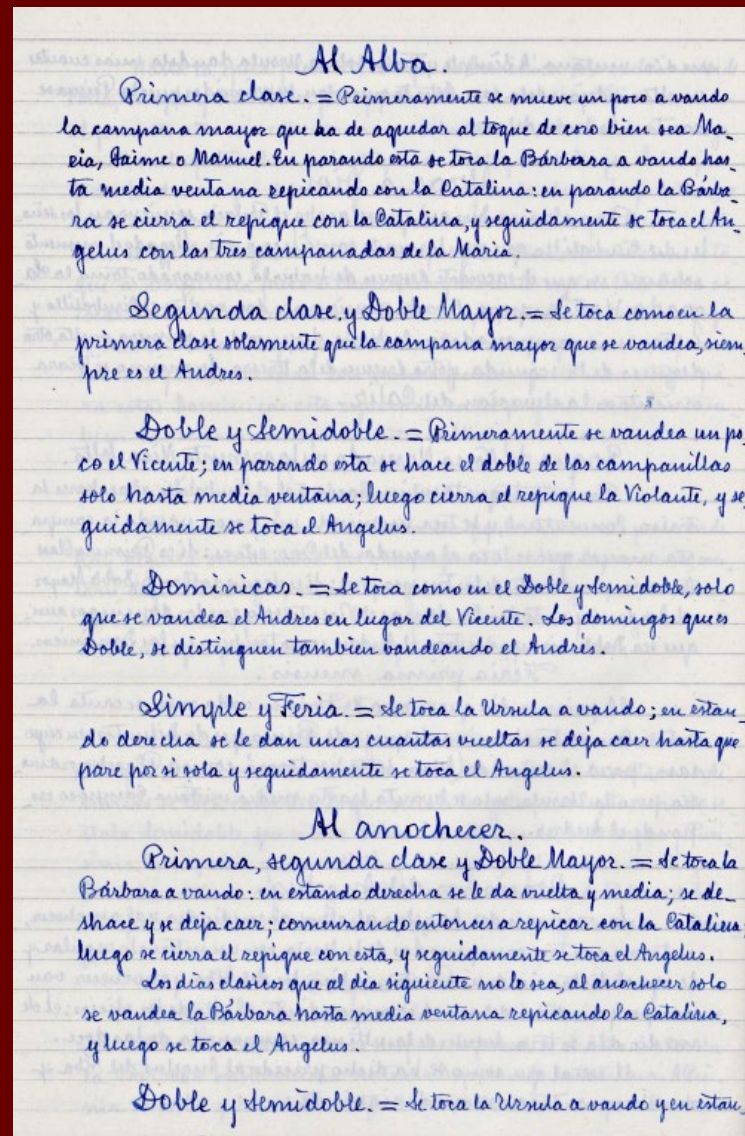 Al Alba.
Primera clase. = Primeramente se mueve un poco a vando
la campana mayor que ha de aquedar al toque de coro bien sea Ma_
ria, Jaime o Manuel. En parando esta se toca la Bárbara a vando has_
ta media ventana repicando con la Catalina: en parando la Bárba_
ra se cierra el repique con la Catalina, y seguidamente se toca el An_
gelus con las tres campanadas de la Maria.
Segunda clase, y Doble Mayor. = Se toca como en la
primera clase solamente que la campana mayor que se vandea, siem_
pre es el Andres.
Doble y Semidoble. = Primeramente se vandea un po_
co el Vicente; en parando esta se hace el doble de las campanillas
solo hasta media ventana; luego cierra el repique la Violante, y se_
guidamente se toca el Angelus.
Dominicas. = Se toca como en el Doble y Semidoble, solo
que se vandea el Andres en lugar del Vicente. Los domingos que es
Doble, se distinguen tambien vandeando el Andrés.
Simple y Feria. = Se toca la Ursula a vando; en estan_
do derecha se le dan unas cuantas vueltas se deja caer hasta que
pare por si sola y seguidamente se toca el Angelus.
Al anochecer.
Primera, segunda clase y Doble Mayor. = Se toca la
Bárbara a vando: en estando derecha se le da vuelta y media; se de_
shace y se deja caer; comenzando entonces a repicar con la Catalina;
luego se cierra el repique con esta, y seguidamente se toca el Angelus.
Los dias clasicos que al dia siguiente no lo sea, al anochecer solo
se vandea la Bárbara hasta media ventana repicando la Catalina,
y luego se toca el Angelus.
Doble y Semidoble. = Se toca la Ursula a vando y en estan_